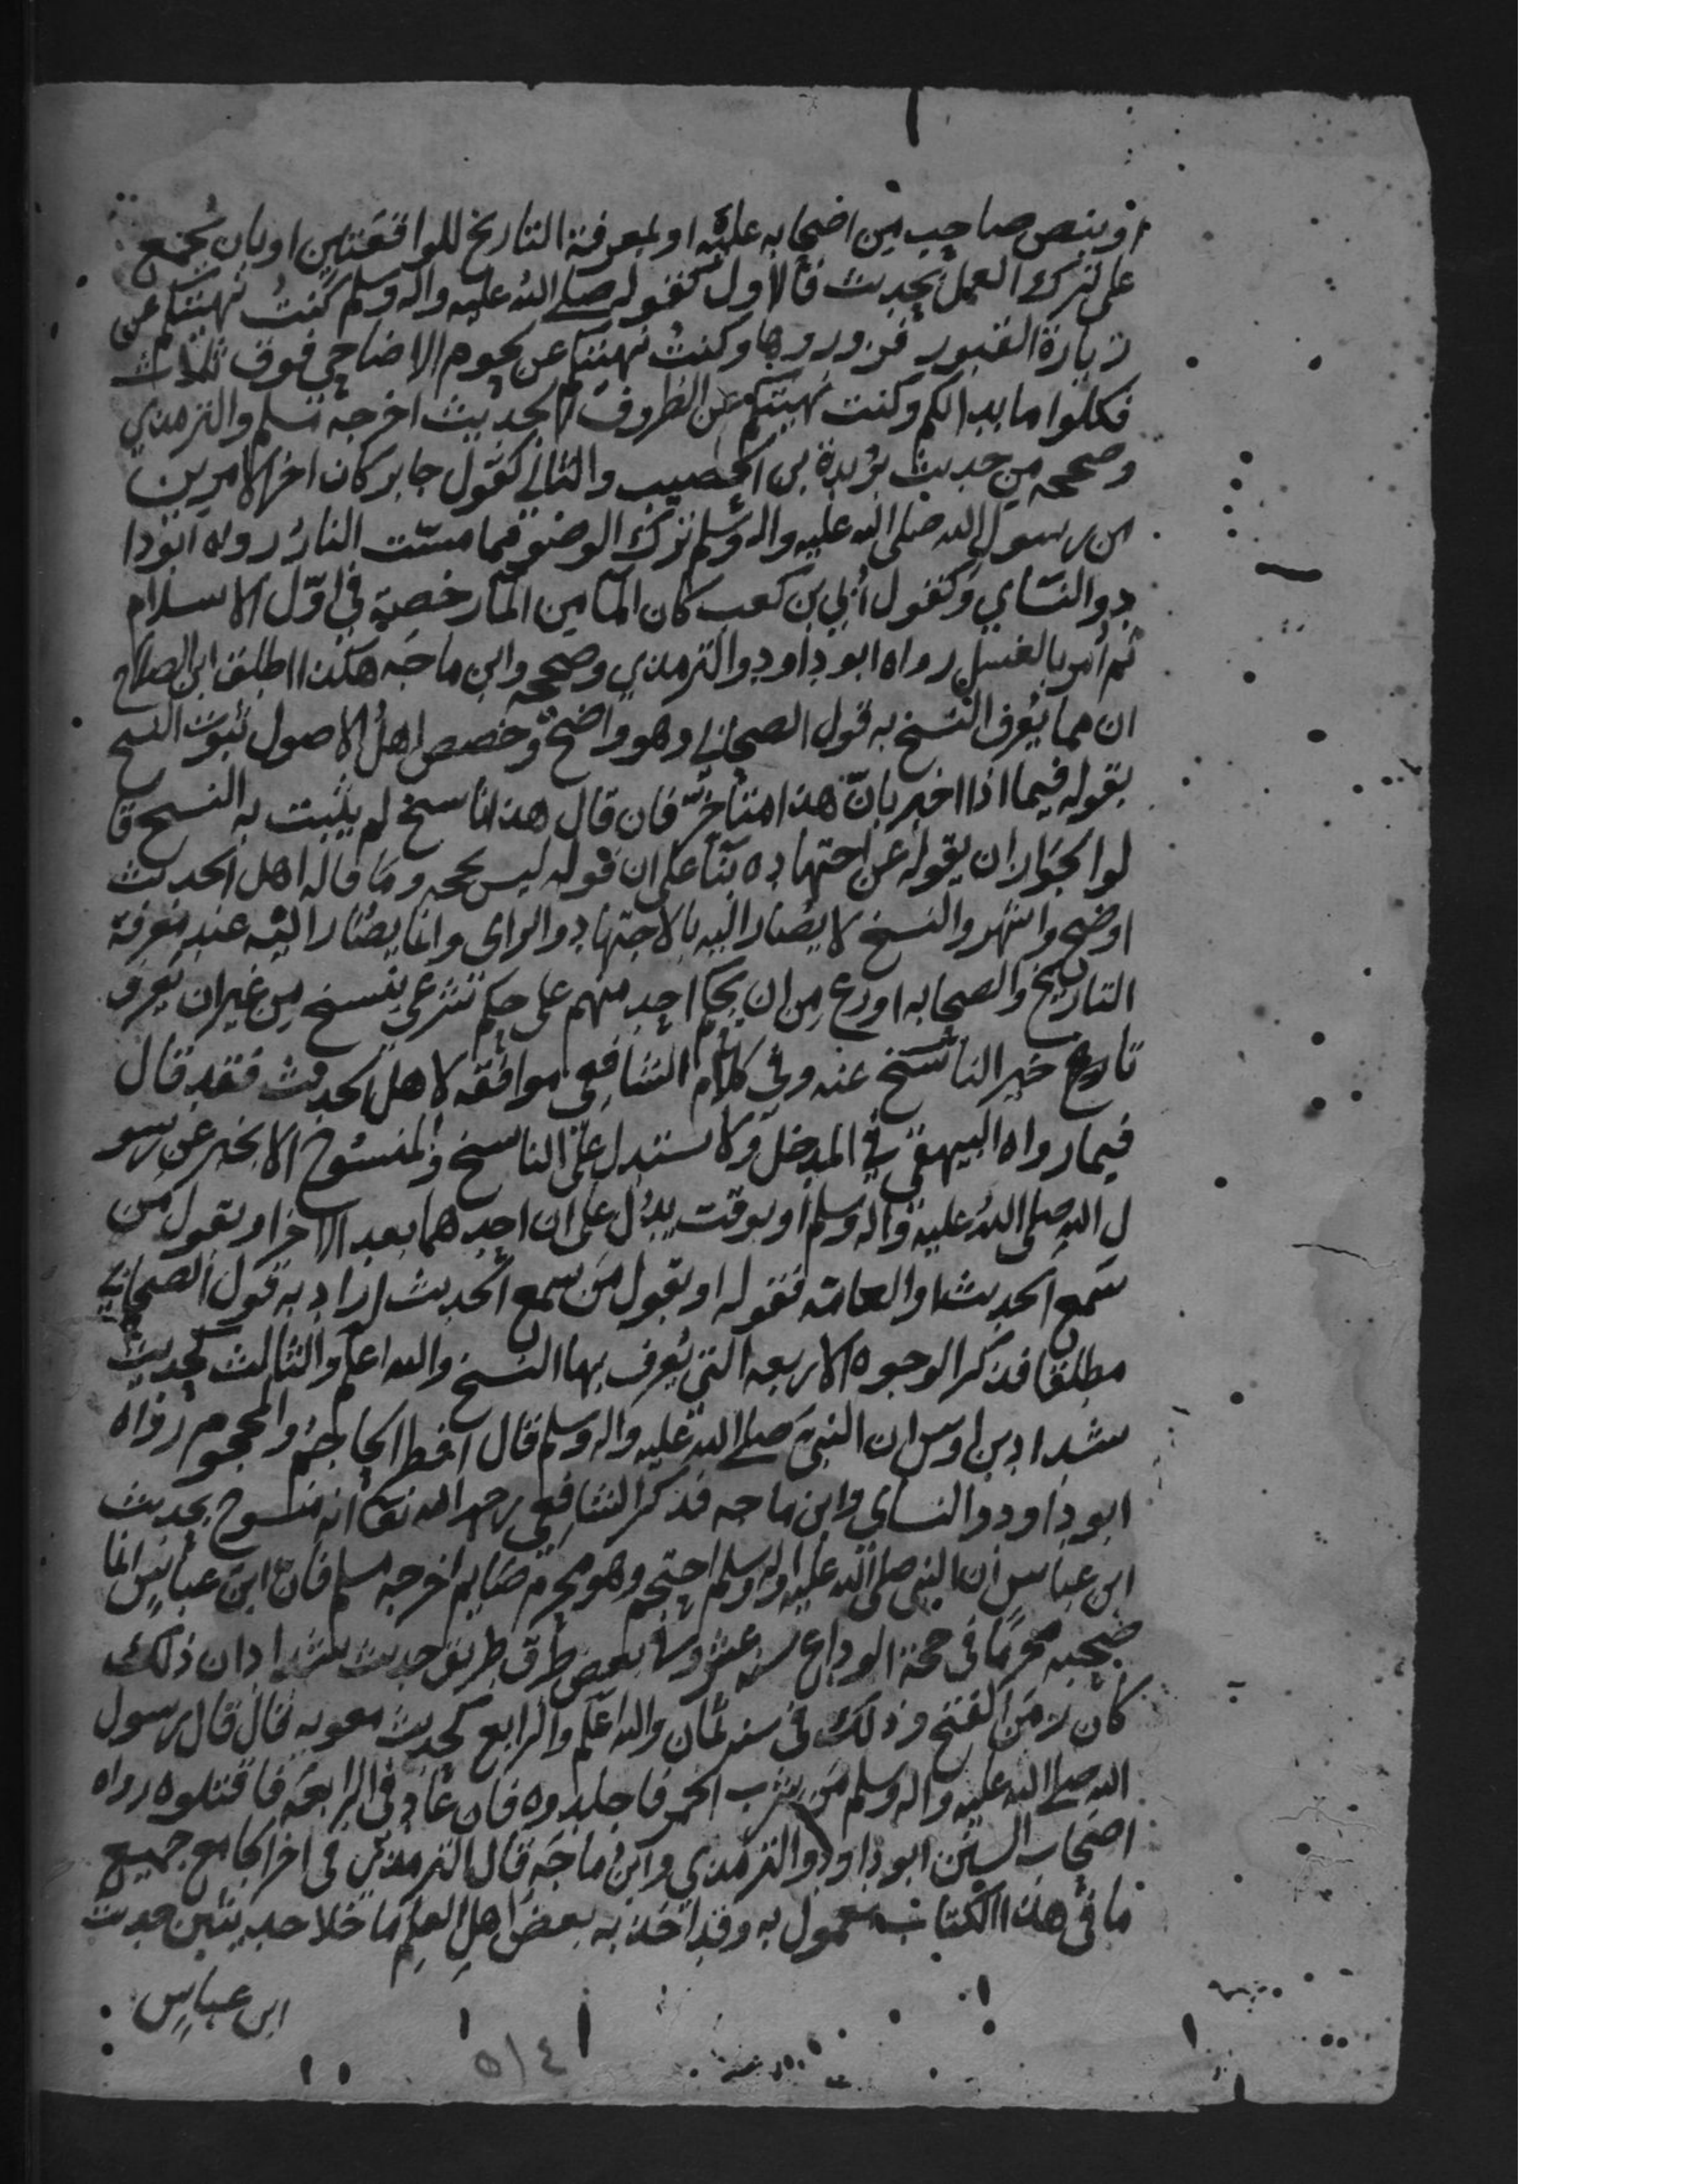 او بنص صاحب من اصحابه عليه او لمعرفة التاريخ للواقعتين او بان يجمع
على ترك العمل بحديث فالاول كقوله صلى الله عليه واله وسلم كنت نهيتكم عن
زيارة القبور فزوروها وكنت نهيتكم عن لحوم الاضاحي فوق ثلاث
فكلوا ما بدا لكم وكنت نهيتكم عن الظروف الحديث اخرجه مسلم والترمذي
وصححه من حديث بريدة بن الحصيب والثاني كقول جابر كان اخر الامرين
من رسول الله صلى الله عليه واله وسلم ترك الوضو مما مست النار رواه ابو دا
ود والنساي وكقول أبي بن كعب كان الما من الما رخصة في اوّل الاسلام
ثم أمر بالغسل رواه ابو داود والترمذي وصححه وابن ماجه هكذا اطلق ابن الصلاح
ان مما يُعرف النسخ به قول الصحابي وهو واضح وخصص اهل الاصول ثبوت النسخ
بقوله فيما اذا اخبر بانّ هذا متأخر فان قال هذا ناسخ لم يثبت به النسخ قا
لوا لجواز ان يقوله عن اجتهاده بنآ على ان قوله ليس بحجه وما قاله اهل الحديث
اوضح واشهر والنسخ لا يصار اليه بالاجتهاد والراى وانما يصار اليه عند معرفة
التاريخ والصحابه اورع من ان يحكم احد منهم على حكم شرعي بنسخ من غير ان يعرف
تاريخ خبر الناسخ عنه وفي كلام الشافعي موافقه لاهل الحديث فقد قال
فيما رواه البيهقي في المدخل ولا يستدل على الناسخ والمنسوخ الا بخبر عن رسو
ل الله صلى الله عليه واله وسلم او بوقت يدل على ان احدهما بعد الاخر او بقول من
سمع الحديث او العامّه فقوله او بقول من سمع الحديث اراد به قول الصحابي
مطلقا فذكر الوجوه الاربعه التي يُعرف بها النسخ والله اعلم والثالث كحديث
شداد بن اوس ان النبي صلى الله عليه واله وسلم قال افطر الحاجم والمحجوم رواه
ابو داود والنساي وابن ماجه فذكر الشافعي رحمه الله تعالى انه منسوخ بحديث
ابن عباس ان النبي صلى الله عليه واله وسلم احتجم وهو محرم صايم اخرجه مسلم فان ابن عباس انما
صحبه محرمًا في حجة الوداع سنه عشر وفي بعض طرق طريق حديث شداد ان ذلك
كان زمن الفتح وذلك في سنه ثمان والله اعلم والرابع كحديث معويه قال قال رسول
الله صلى الله عليه واله وسلم من شرب الخمر فاجلدوه فان عاد في الرابعه فاقتلوه رواه
اصحاب السنن ابو داود والترمذي وابن ماجه قال الترمذي في اخر الجامع جميع
ما في هذا الكتاب معمول به وقد اخذ به بعض اهل العلم ما خلا حديثين حديث
ابن عباس
٥١٤